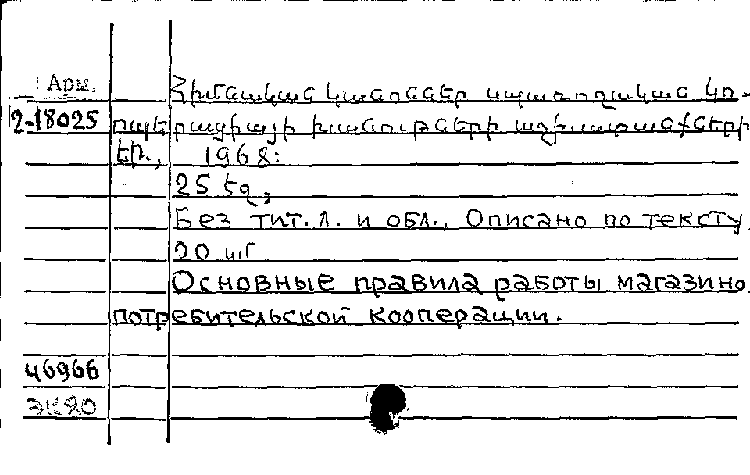 Арм.
Հիմնական կանոններ սպառողական կո-
2-18025
օպերացիայի խանութների աշխատանքների
Եր., 1968:
25 էջ,
Без тит. л. и обл., Описано по тексту
20 шт
Основные правила работы магазино
потребительской кооперации.
46966